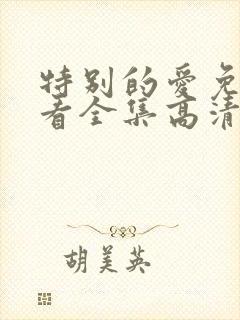 特别的爱免
看全集高清
胡美英